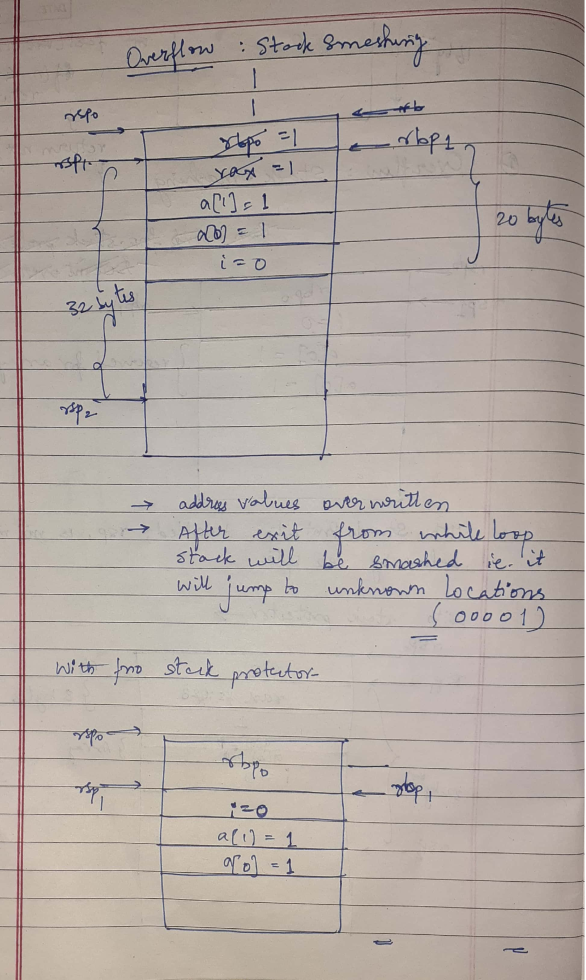 Overflow : Stack Smeshing
rsp0
rbp0 = 1
rsp1
rbp1
rax = 1
a[1] = 1
20 bytes
a[0] = 1
i = 0
32 bytes
rsp2
→ address values overwritten
→ After exit from while loop
stack will be smashed ie. it
will jump to unknown locations
(00001)
With fno stack protector-
rsp0
rbp0
rsp1
rbp1
i=0
a[1] = 1
a[0] = 1